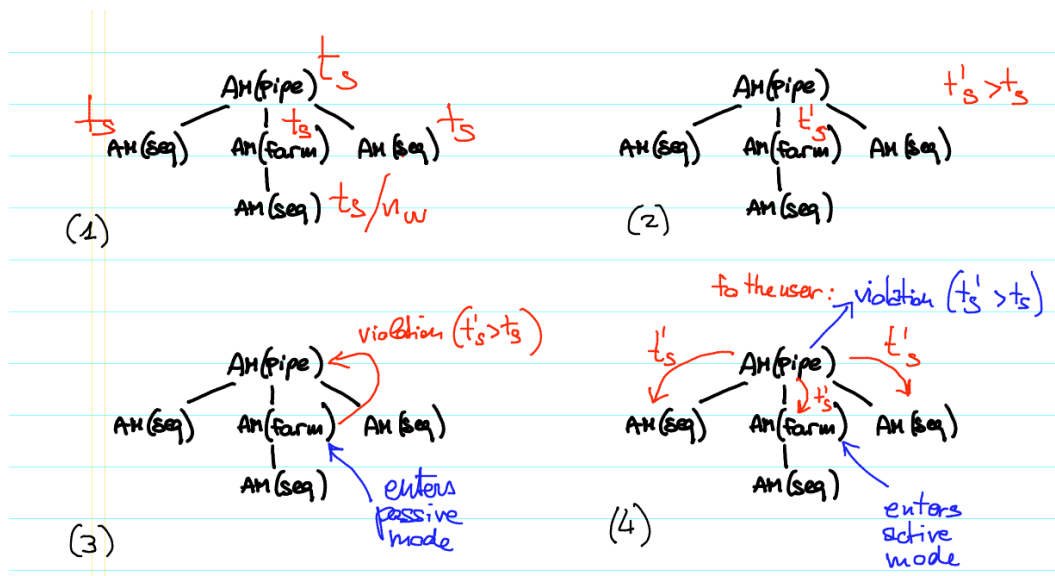 AM(pipe) ts
ts ts ts
AM(seq) AM(farm) AM(seq)
AM(seq) ts/nw
(1)
AM(pipe) t's>ts
t's
AM(seq) AM(farm) AM(seq)
AM(seq)
(2)
violation (t's>ts)
AM(pipe)
AM(seq) AM(farm) AM(seq)
AM(seq)
enters
passive
mode
(3)
to the user: violation (t's >ts)
t's AM(pipe) t's
t's
AM(seq) AM(farm) AM(seq)
AM(seq)
enters
active
mode
(4)